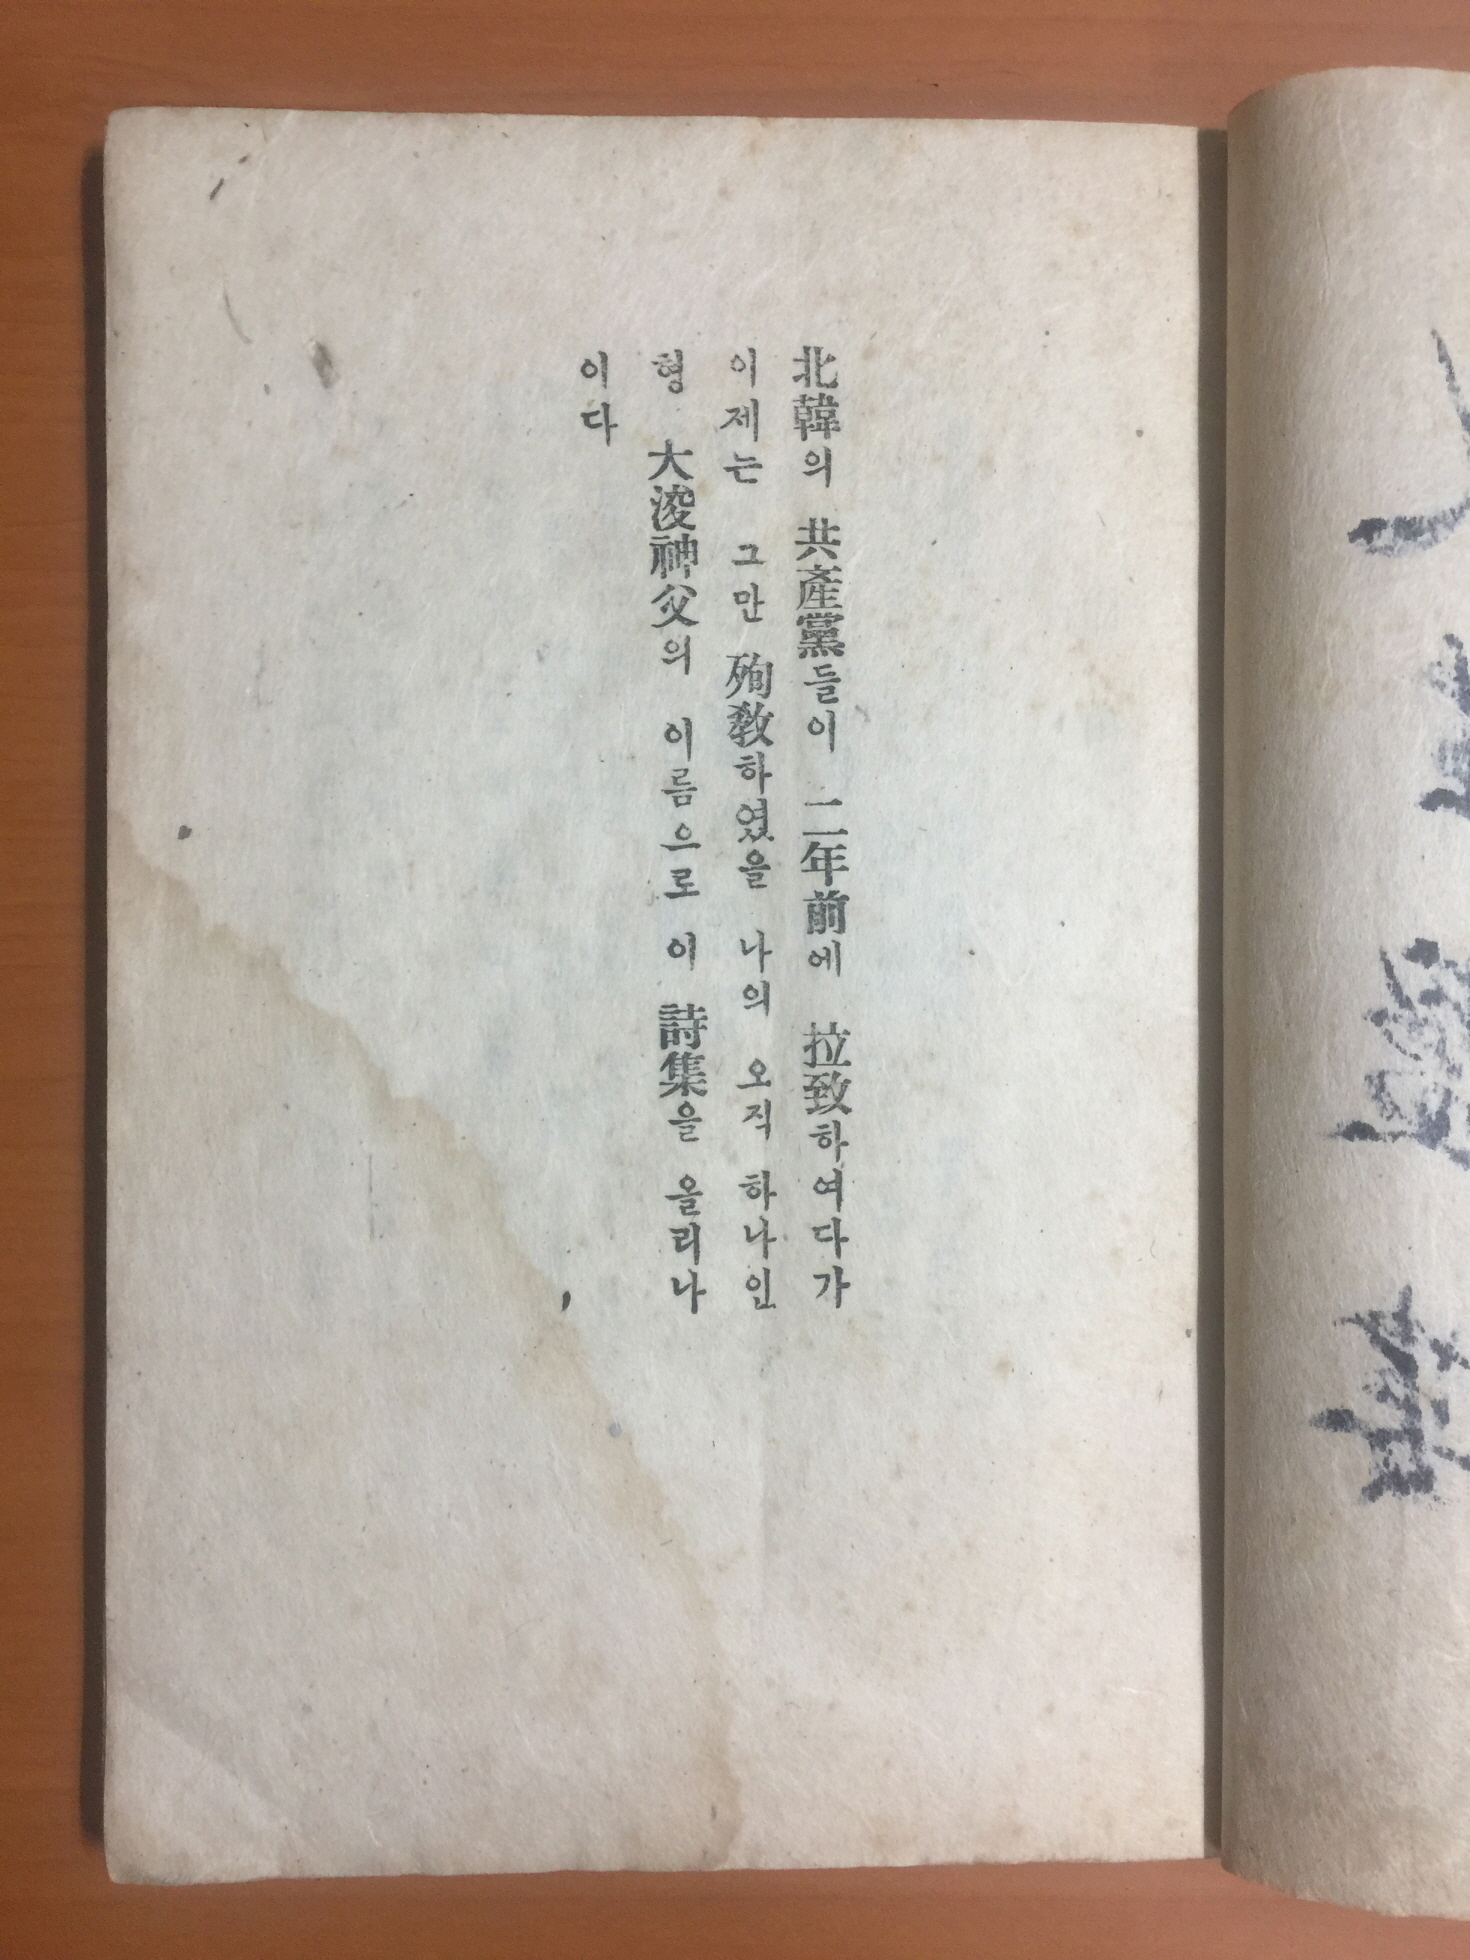 北韓의 共產黨들이 二年前에 拉致하여다가
이제는 그만 殉敎하였을 나의 오직 하나인
형 大浚神父의 이름으로 이 詩集을 올리나
이다